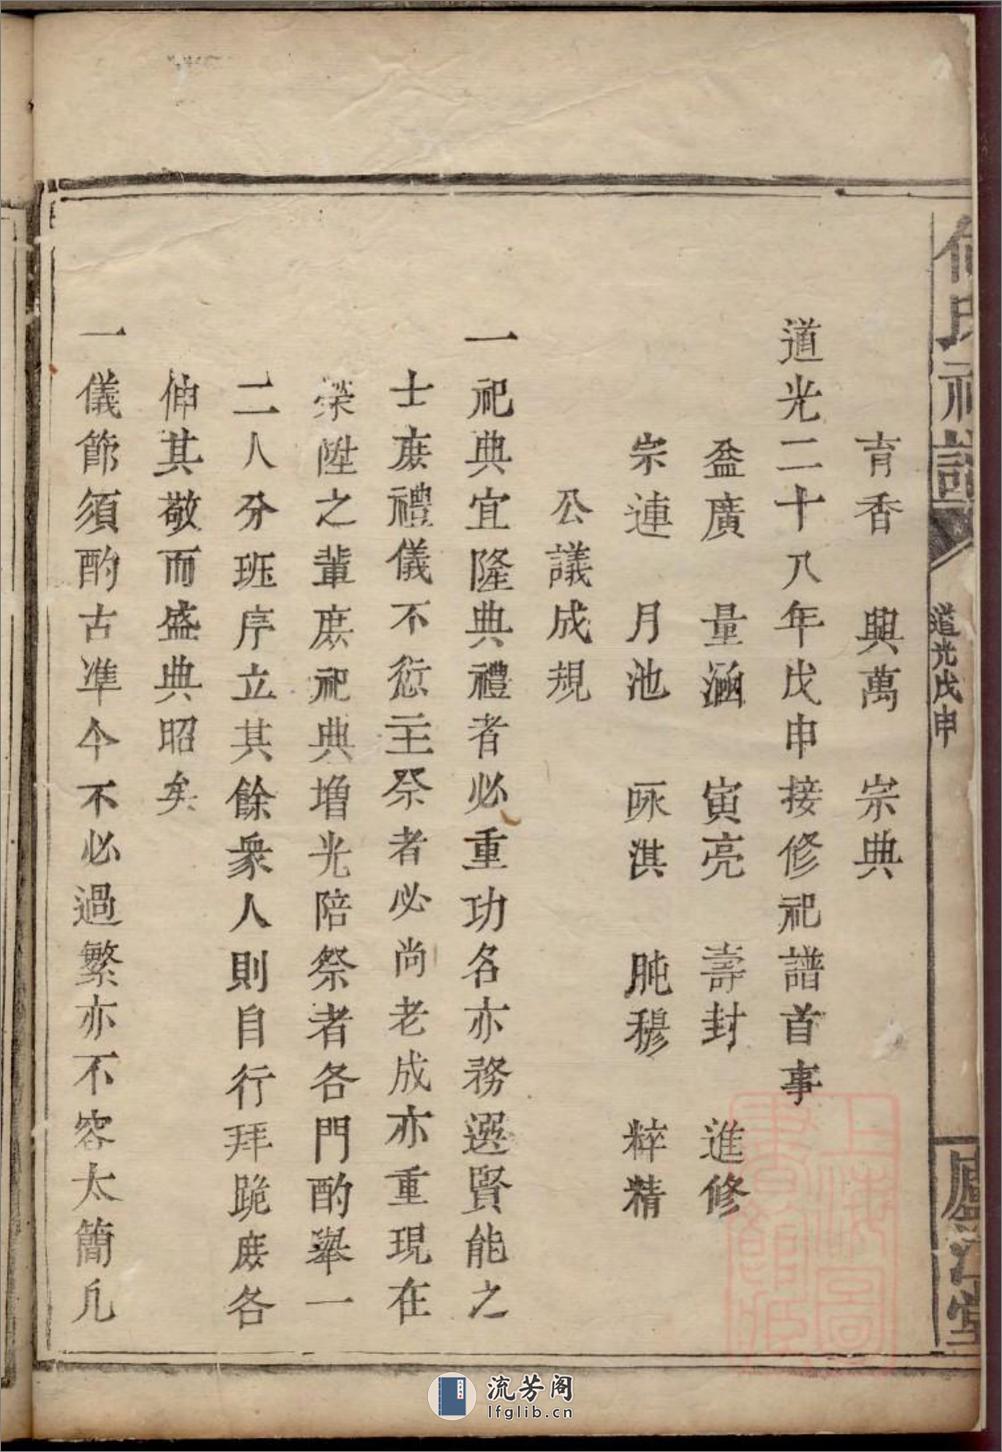 何氏祀譜
道光戊申
廬江堂
育香　興萬　宗典
道光二十八年戊申接修祀譜首事
益廣　量涵　寅亮　壽封　進修
宗連　月池　咏淇　肫穆　粹精
公議成規
一祀典宜隆典禮者必重功名亦務選賢能之
士庶禮儀不愆主祭者必尚老成亦重現在
榮陞之輩庶祀典增光陪祭者各門酌舉一
二人分班序立其餘衆人則自行拜跪庶各
伸其敬而盛典昭矣
一儀節須酌古準今不必過繁亦不容太簡凡
上海圖書館藏
流芳阁
lfglib.cn